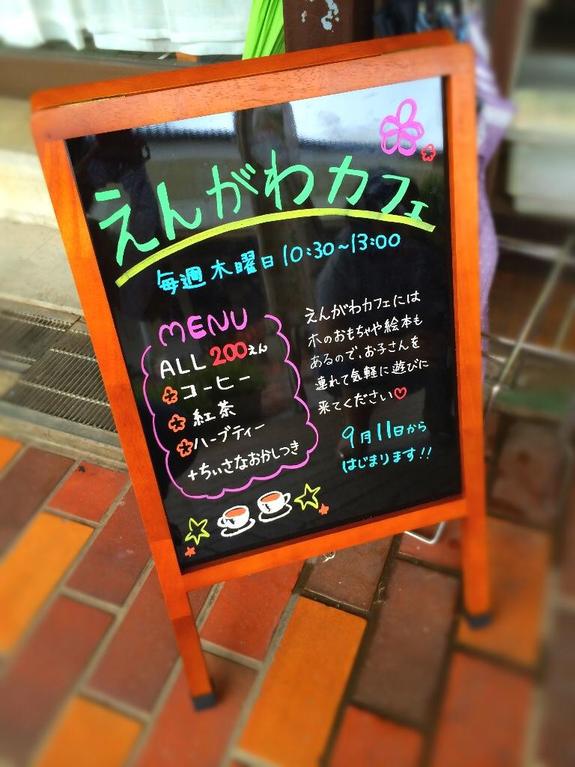 えんがわカフェ
毎週木曜日10:30~13:00
MENU
ALL 200えん
コーヒー
紅茶
ハーブティー
+ちいさなおかしつき
えんがわカフェには
木のおもちゃや絵本も
あるので、お子さんを
連れて気軽に遊びに
来てください♡
9月11日から
はじまります!!